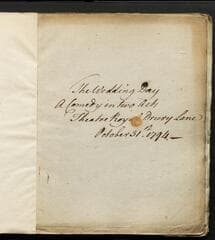 The Wedding Day
A Comedy in two Acts
Theatre Royal Drury Lane
October 31st. 1794—